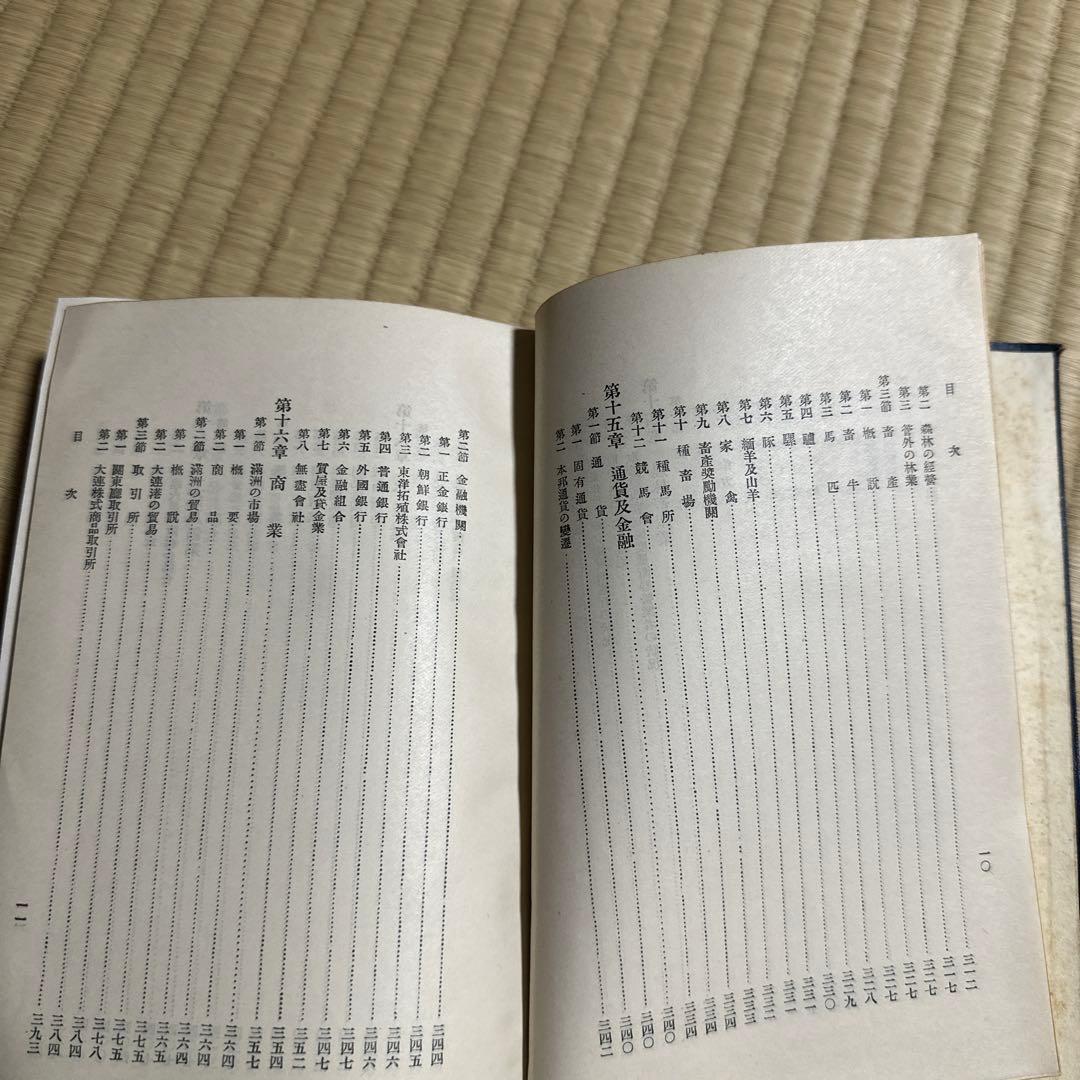 目次
第二 森林の經營 三一二
第三 管外の林業 三一七
第三節 畜產 三二七
第一 概說 三二七
第二 畜牛 三二七
第三 馬匹 三二八
第四 驢 三二九
第五 騾 三三〇
第六 豚 三三一
第七 緬羊及山羊 三三一
第八 家禽 三三二
第九 畜產獎勵機關 三三三
第十 種畜場 三三四
第十一 種馬所 三三四
第十二 競馬會 三三四
第十五章 通貨及金融 三四〇
第一節 通貨 三四〇
第一 固有通貨 三四〇
第二 本邦通貨の變遷 三四二
一〇
第二節 金融機關 三四四
第一 正金銀行 三四五
第二 朝鮮銀行 三四六
第三 東洋拓殖株式會社 三四六
第四 普通銀行 三四七
第五 外國銀行 三四七
第六 金融組合 三五二
第七 質屋及貸金業 三五四
第八 無盡會社 三五七
第十六章 商業 三六四
第一節 滿洲の市場 三六四
第一 概要 三六四
第二 商品 三六五
第二節 滿洲の貿易 三七五
第一 概說 三七五
第二 大連港の貿易 三七八
第三節 取引所 三八四
第一 關東廳取引所 三八四
第二 大連株式商品取引所 三九三
目次
一一